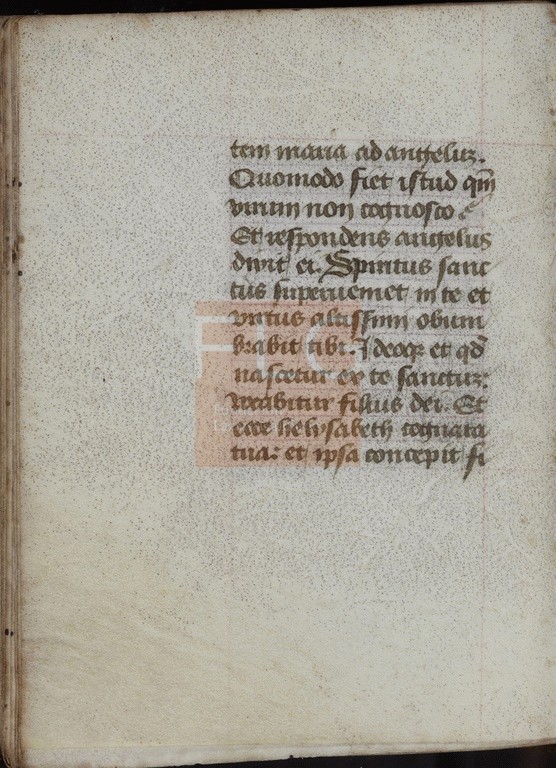 tem maria ad angeluz.
Quomodo fiet istud qm̅
virum non cognosco
Et respondens angelus
dixit ei. Spiritus sanc
tus superueniet in te et
virtus altissimi obum
brabit tibi. Ideoqꝫ et qd̅
nascetur ex te sanctuz:
vocabitur filius dei. Et
ecce helysabeth cognata
tua: et ipsa concepit fi